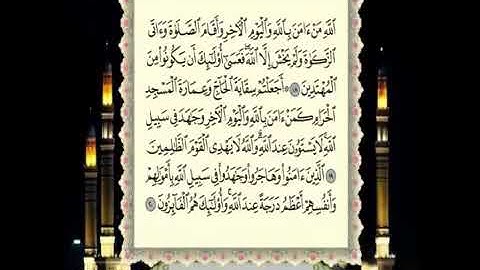 ٱللَّهِ مَنْ ءَامَنَ بِٱللَّهِ وَٱلْيَوْمِ ٱلْءَاخِرِ وَأَقَامَ ٱلصَّلَوٰةَ وَءَاتَى
ٱلزَّكَوٰةَ وَلَمْ يَخْشَ إِلَّا ٱللَّهَ ۖ فَعَسَىٰٓ أُو۟لَٰٓئِكَ أَن يَكُونُوا۟ مِنَ
ٱلْمُهْتَدِينَ ١٨ ۞ أَجَعَلْتُمْ سِقَايَةَ ٱلْحَآجِّ وَعِمَارَةَ ٱلْمَسْجِدِ
ٱلْحَرَامِ كَمَنْ ءَامَنَ بِٱللَّهِ وَٱلْيَوْمِ ٱلْءَاخِرِ وَجَٰهَدَ فِى سَبِيلِ
ٱللَّهِ ۚ لَا يَسْتَوُۥنَ عِندَ ٱللَّهِ ۗ وَٱللَّهُ لَا يَهْدِى ٱلْقَوْمَ ٱلظَّٰلِمِينَ
١٩ ٱلَّذِينَ ءَامَنُوا۟ وَهَاجَرُوا۟ وَجَٰهَدُوا۟ فِى سَبِيلِ ٱللَّهِ بِأَمْوَٰلِهِمْ
وَأَنفُسِهِمْ أَعْظَمُ دَرَجَةً عِندَ ٱللَّهِ ۚ وَأُو۟لَٰٓئِكَ هُمُ ٱلْفَآئِزُونَ ٢٠